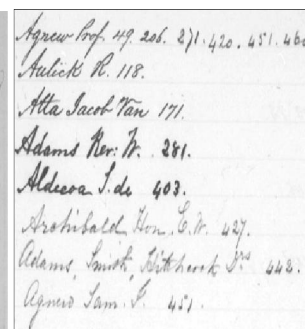 Agnew Prof. 49. 206. 271. 420. 451. 460
Aulick R. 118.
Atta Jacob Van 171.
Adams Rev: W. 281.
J. de 403.
Archibald Hon. E. W. 427.
Adams, Smith, Hitchcock Drs 442.
Agnew Sam. J. 451.